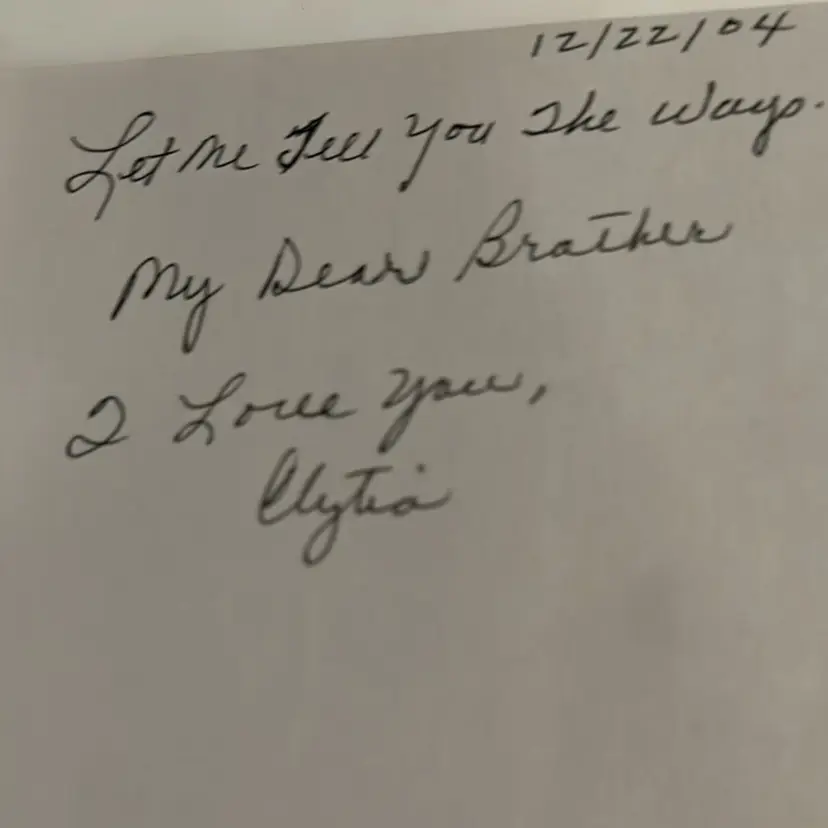 12/22/04
Let Me Tell You The Ways.
My Dear Brother
I Love You,
Clytia